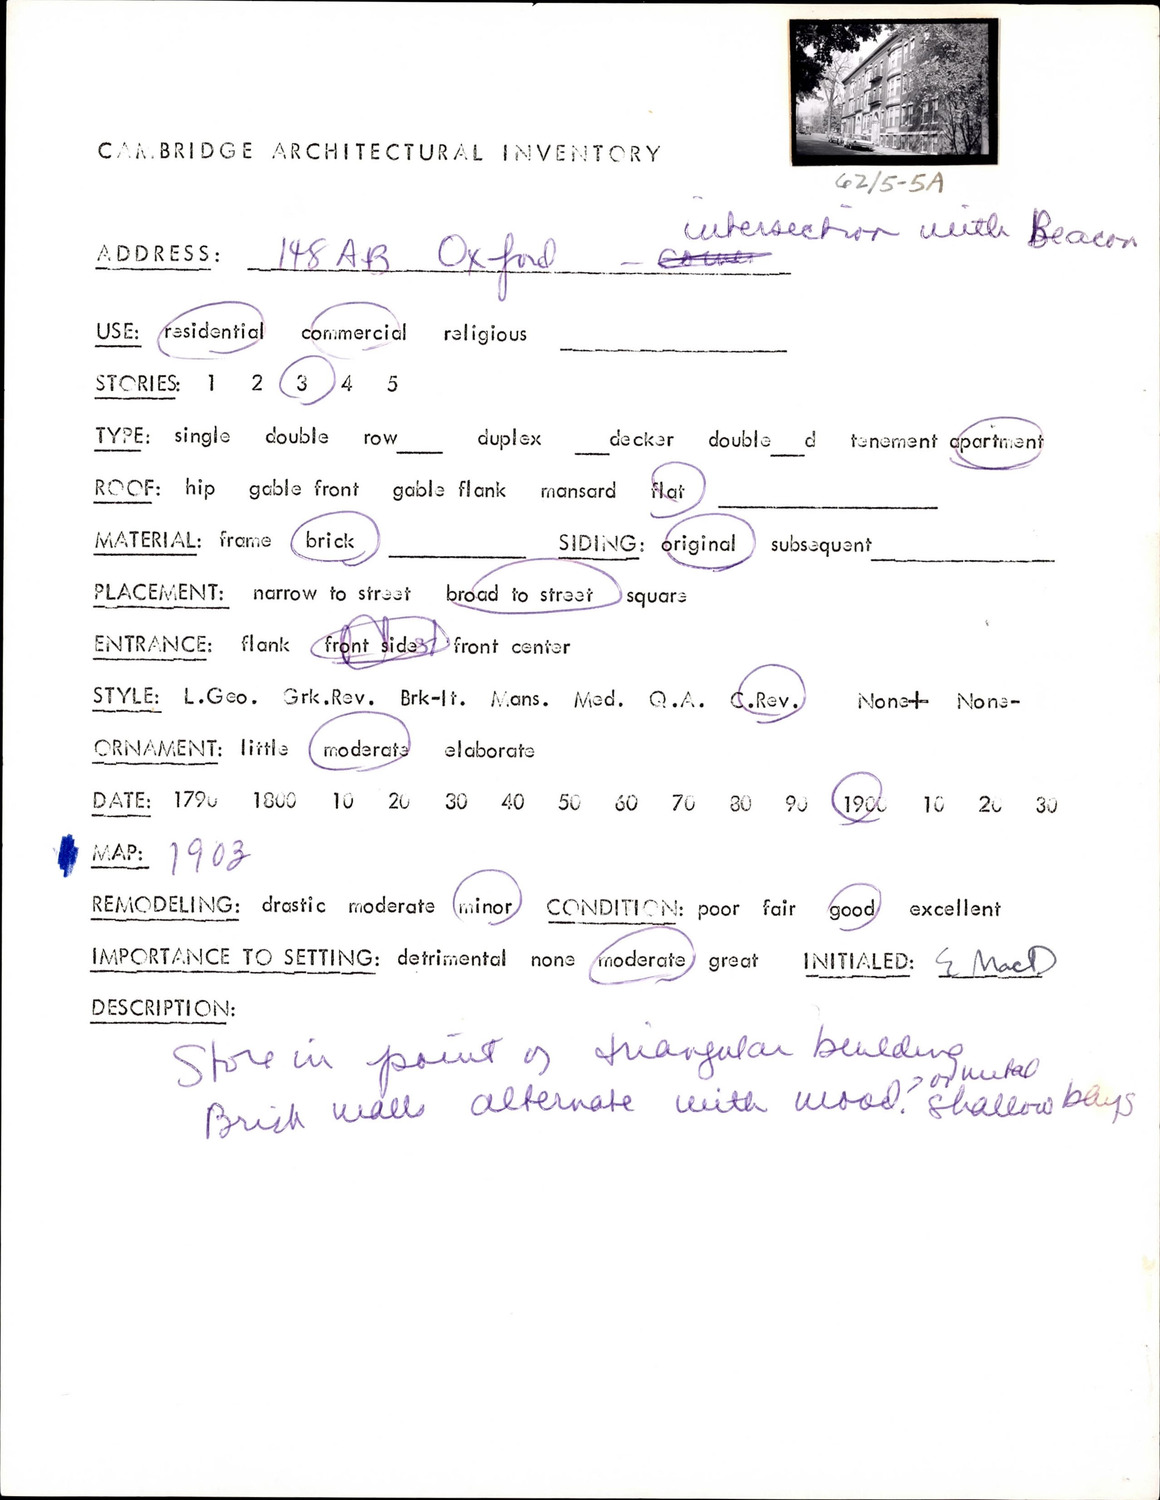 62/5-5A
CAMBRIDGE ARCHITECTURAL INVENTORY
intersection with Beacon
ADDRESS: 148 AB Oxford -
USE: residential commercial religious
STORIES: 1 2 3 4 5
TYPE: single double row___ duplex ___decker double___d tenement apartment
ROOF: hip gable front gable flank mansard flat
MATERIAL: frame brick ___ SIDING: original subsequent
PLACEMENT: narrow to street broad to street square
ENTRANCE: flank front side front center
STYLE: L.Geo. Grk.Rev. Brk-It. Mans. Med. Q.A. C.Rev. None+ None-
ORNAMENT: little moderate elaborate
DATE: 1790 1800 10 20 30 40 50 60 70 80 90 1900 10 20 30
MAP: 1903
REMODELING: drastic moderate minor CONDITION: poor fair good excellent
IMPORTANCE TO SETTING: detrimental none moderate great INITIALED: E MacD
DESCRIPTION:
Store in point of triangular building
Brick walls alternate with wood? or metal shallow bays